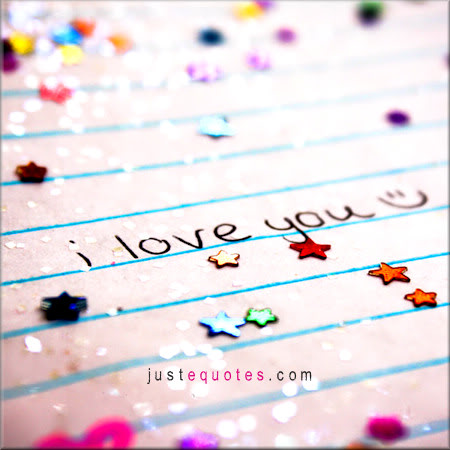 i love you :)
justequotes.com